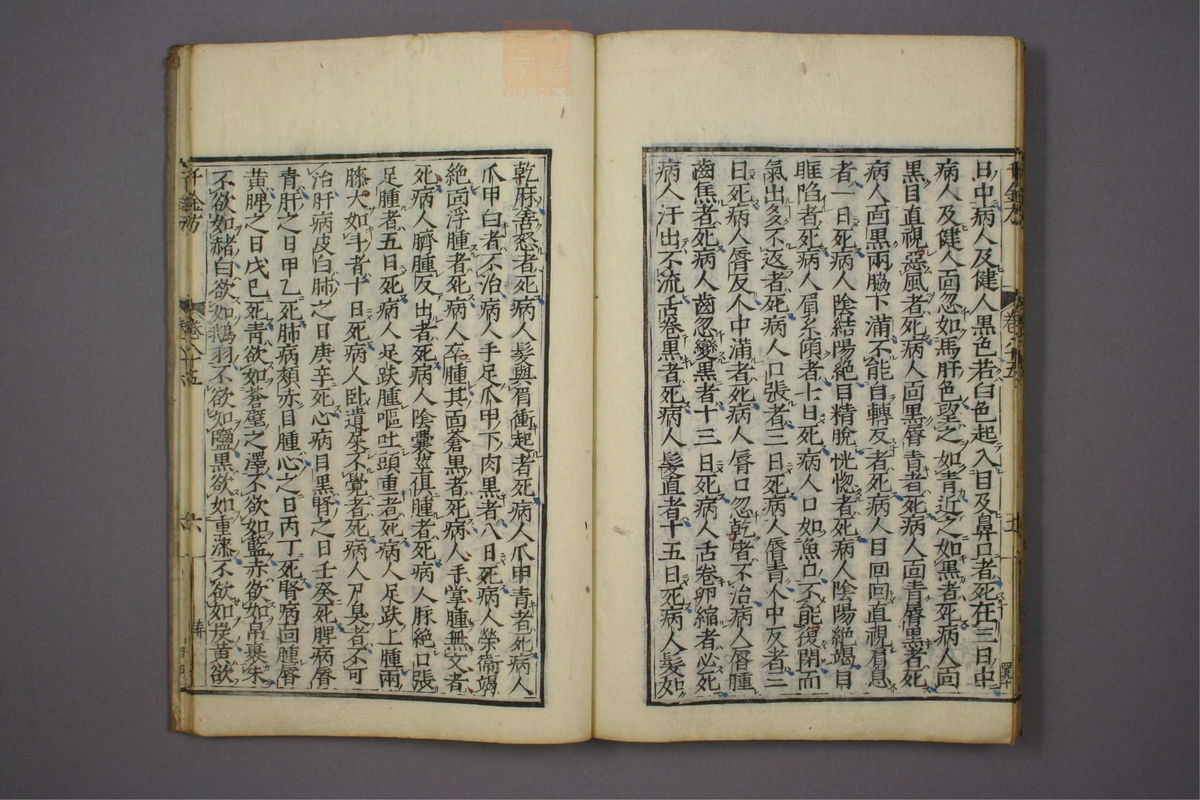 日中病人及健人黑色若白色起入目及鼻口者死在三日中
病人及健人面忽如馬肝色望之如青近之如黑者死病人面
黑目直視惡風者死病人面黑唇青者死病人面青唇黑者死
病人面黑兩脇下滿不能自轉反者死病人目回回直視肩息
者一日死病人陰結陽絕目精脫恍惚者死病人陰陽絕竭目
眶陷者死病人眉系傾者七日死病人口如魚口不能復閉而
氣出多不返者死病人口張者三日死病人唇青人中反者三
日死病人唇反人中滿者死病人唇口忽乾者不治病人唇腫
齒焦者死病人齒忽變黑者十三日死病人舌卷卵縮者必死
病人汗出不流舌卷黑者死病人髮直者十五日死病人髮如
乾麻善怒者死病人髮與眉衝起者死病人爪甲青者死病人
爪甲白者不治病人手足爪甲下肉黑者八日死病人榮衞竭
絕面浮腫者死病人卒腫其面蒼黑者死病人手掌腫無文者
死病人臍腫反出者死病人陰囊莖俱腫者死病人脈絕口張
足腫者五日死病人足趺腫嘔吐頭重者死病人足趺上腫兩
膝大如斗者十日死病人臥遺尿不覺者死病人尸臭者不可
治肝病皮白肺之日庚辛死心病目黑腎之日壬癸死脾病唇
青肝之日甲乙死肺病頰赤目腫心之日丙丁死腎病面腫唇
黃脾之日戊己死青欲如蒼璧之澤不欲如藍赤欲如帛裹朱
不欲如赭白欲如鵝羽不欲如鹽黑欲如重漆不欲如炭黃欲
千金方
卷
六